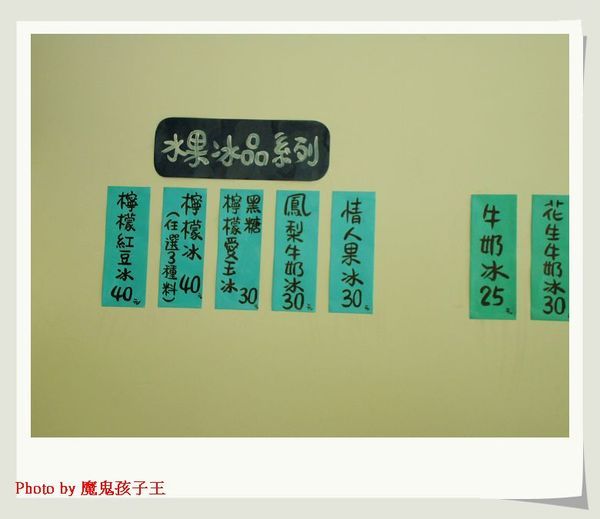 水果冰品系列
檸檬紅豆冰
40元
檸檬冰 40元
(任選3種料)
黑糖
檸檬愛玉冰
30元
鳳梨牛奶冰
30元
情人果冰
30元
牛奶冰
25元
花生牛奶冰
30
Photo by 魔鬼孩子王